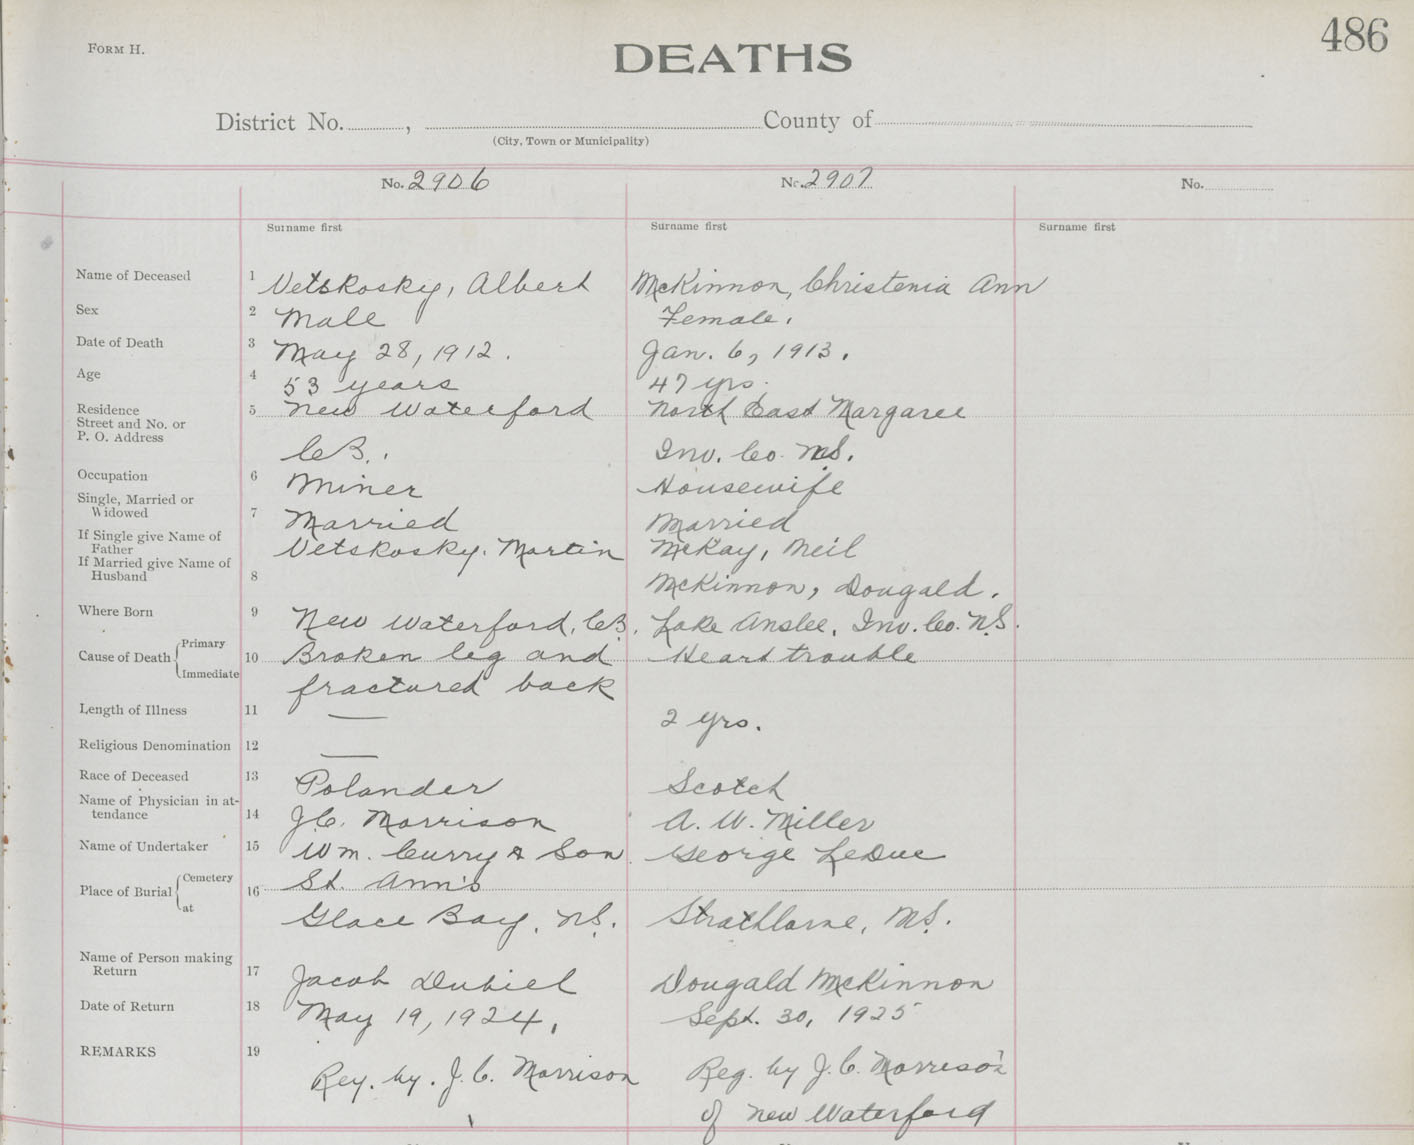 486
FORM H.
DEATHS
District No. , County of
(City, Town or Municipality)
No. 2906 No. 2907 No.
Surname first Surname first Surname first
Name of Deceased 1 Vetskosky, Albert McKinnon, Christenia Ann
Sex 2 Male Female.
Date of Death 3 May 28, 1912. Jan. 6, 1913.
Age 4 53 years 47 yrs.
Residence 5 New Waterford North East Margaree
Street and No. or
P. O. Address C.B. Inv. Co. N.S.
Occupation 6 Miner Housewife
Single, Married or
Widowed 7 Married Married
If Single give Name of
Father Vetskosky, Martin McKay, Neil
If Married give Name of
Husband 8 McKinnon, Dougald.
Where Born 9 New Waterford, C.B. Lake Anslee, Inv. Co. N.S.
Cause of Death Primary 10 Broken leg and Heart trouble
Immediate fractured back
Length of Illness 11 — 2 yrs.
Religious Denomination 12 —
Race of Deceased 13 Polander Scotch
Name of Physician in at-
tendance 14 J.C. Morrison A. W. Miller
Name of Undertaker 15 Wm. Curry & Son George LeDuc
Place of Burial Cemetery 16 St. Ann's
at Glace Bay, N.S. Strathlorne, N.S.
Name of Person making
Return 17 Jacob Dubiel Dougald McKinnon
Date of Return 18 May 19, 1924. Sept. 30, 1925
REMARKS 19 Reg. by. J. C. Morrison Reg. by J. C. Morrison
of New Waterford